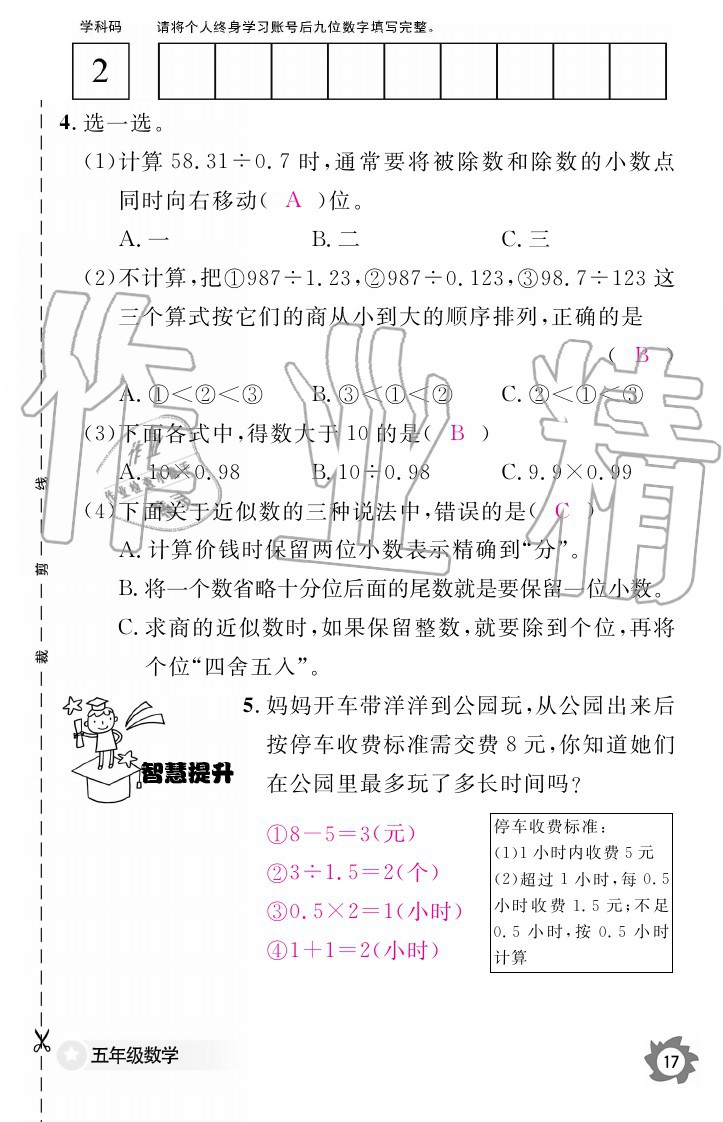 学科码 请将个人终身学习账号后九位数字填写完整。
2
4. 选一选。
(1)计算 58.31÷0.7 时,通常要将被除数和除数的小数点
同时向右移动( A )位。
A. 一 B. 二 C. 三
(2)不计算,把①987÷1.23,②987÷0.123,③98.7÷123 这
三个算式按它们的商从小到大的顺序排列,正确的是
( B )
A. ①<②<③ B. ③<①<② C. ②<①<③
(3)下面各式中,得数大于 10 的是( B )
A. 10×0.98 B. 10÷0.98 C. 9.9×0.99
(4)下面关于近似数的三种说法中,错误的是( C )
A. 计算价钱时保留两位小数表示精确到“分”。
B. 将一个数省略十分位后面的尾数就是要保留一位小数。
C. 求商的近似数时,如果保留整数,就要除到个位,再将
个位“四舍五入”。
智慧提升
5. 妈妈开车带洋洋到公园玩,从公园出来后
按停车收费标准需交费 8 元,你知道她们
在公园里最多玩了多长时间吗?
①8-5=3(元)
②3÷1.5=2(个)
③0.5×2=1(小时)
④1+1=2(小时)
停车收费标准:
(1)1 小时内收费 5 元
(2)超过 1 小时,每 0.5
小时收费 1.5 元;不足
0.5 小时,按 0.5 小时
计算
线
剪
裁
五年级数学
17
作业精